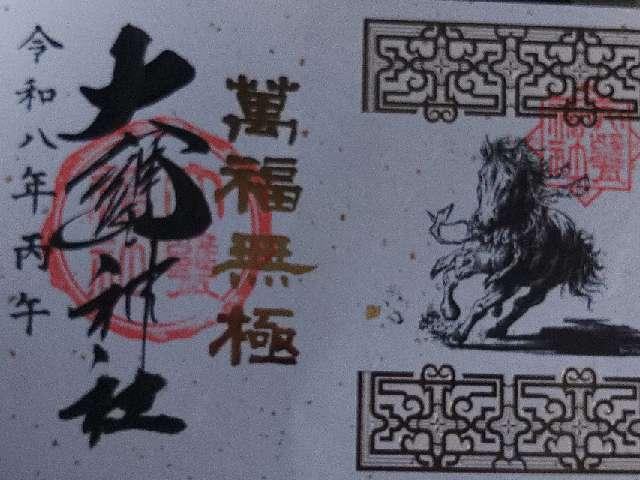 萬福無極
大甕神社
令和八年丙午